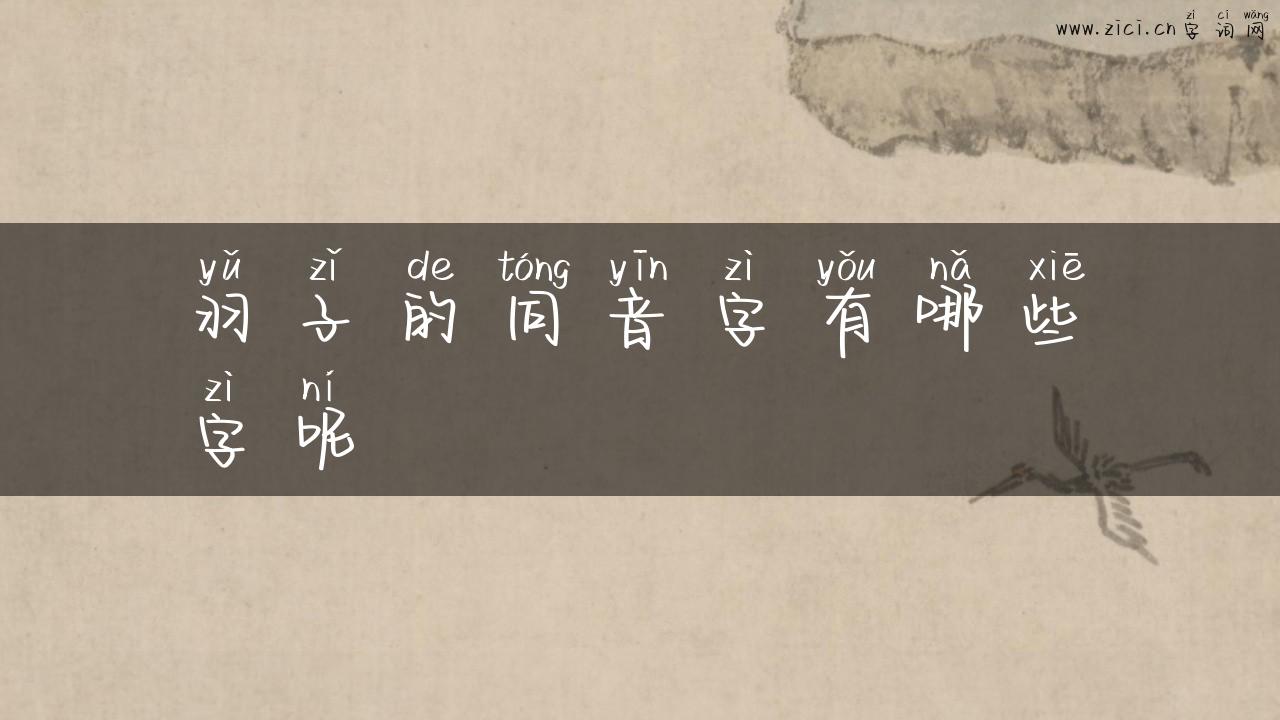 zì cí wǎng
www.zici.cn 字 词 网
yǔ zǐ de tóng yīn zì yǒu nǎ xiē
羽 子 的 同 音 字 有 哪 些
zì ní
字 呢